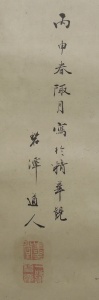 丙申春陬月寫於精華館
岩潭道人